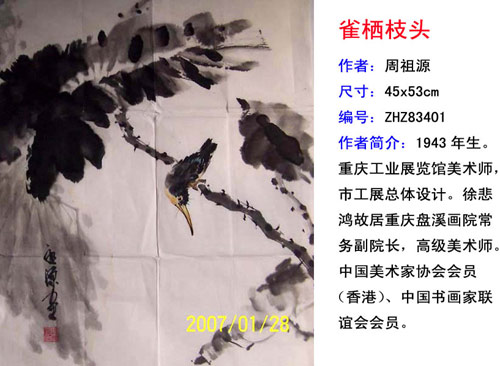 雀栖枝头
作者：周祖源
尺寸：45x53cm
编号：ZHZ83401
作者简介：1943年生。
重庆工业展览馆美术师，
市工展总体设计。徐悲
鸿故居重庆盘溪画院常
务副院长，高级美术师。
中国美术家协会会员
（香港）、中国书画家联
谊会会员。
2007/01/28